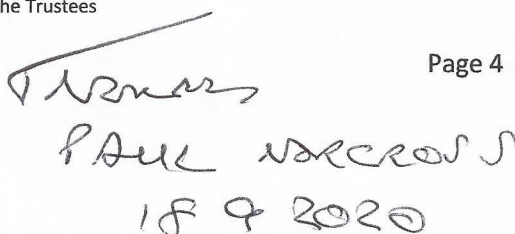 he Trustees
Page 4
PAUL NORCROSS
18 9 2020